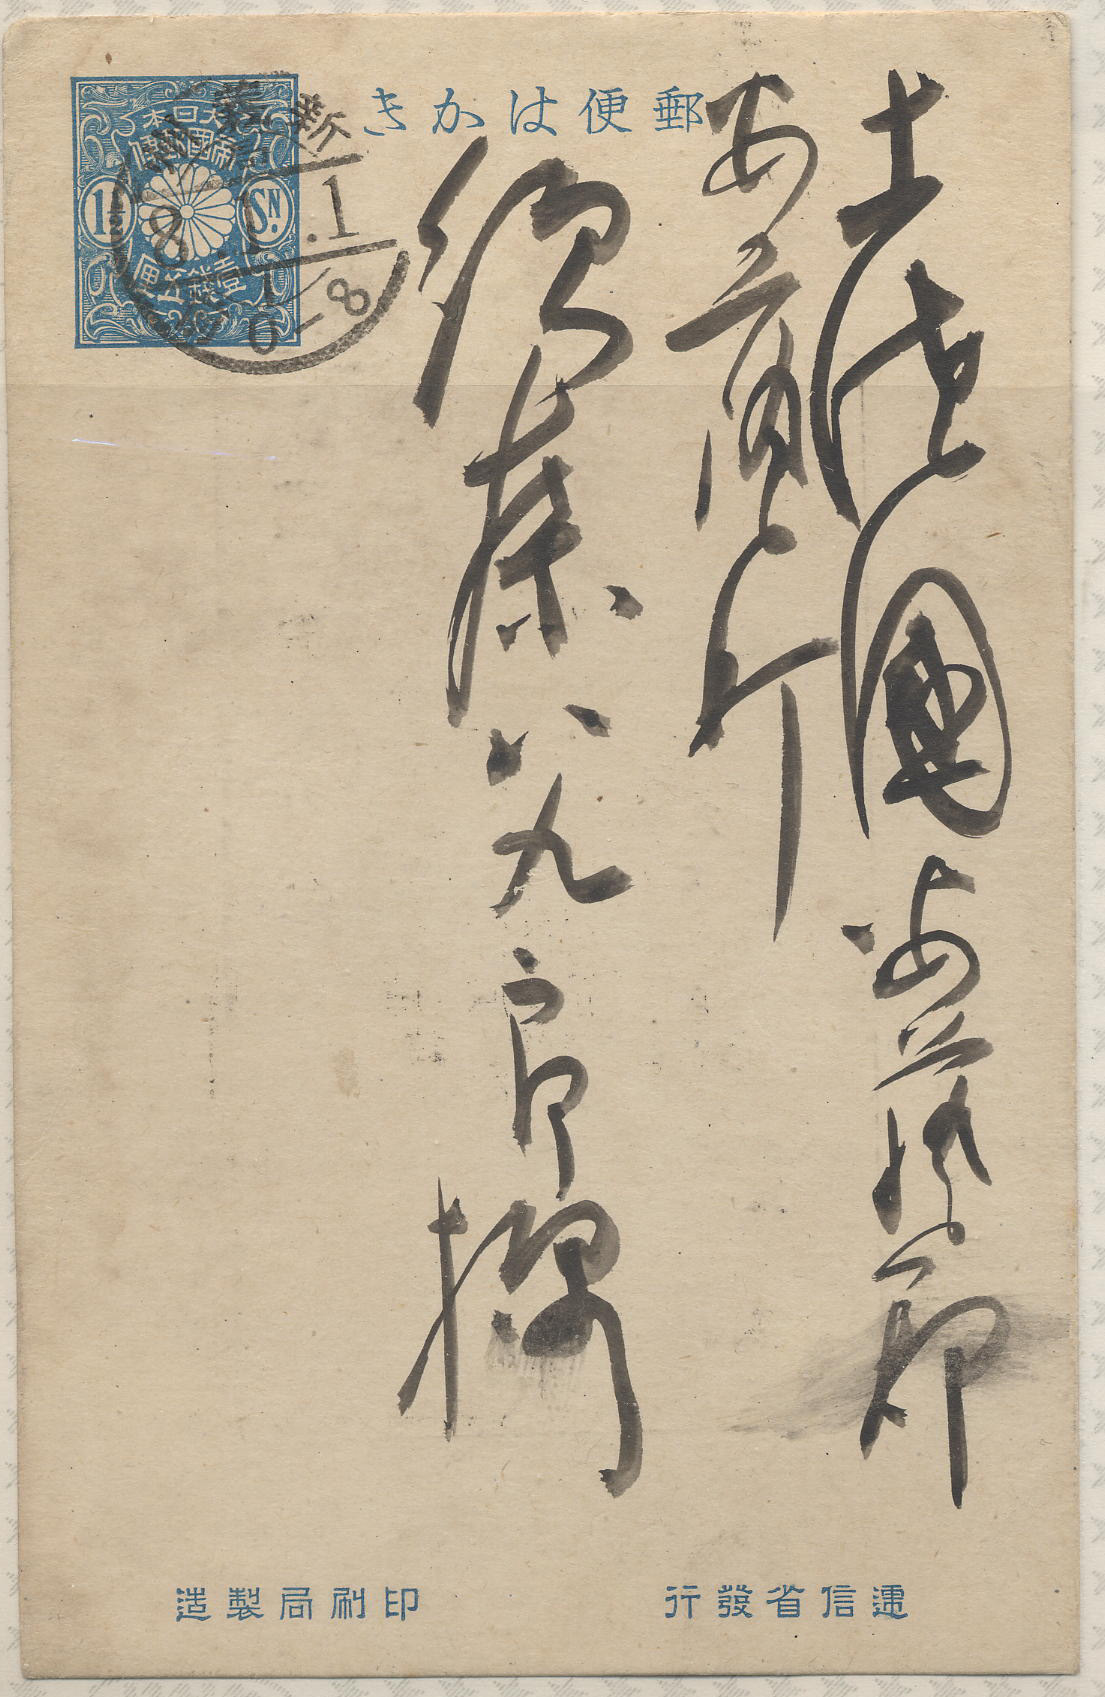 郵便はかき
大日本
帝國郵便
1½ SN.
壹錢五厘
8.1.1
土佐國安藝郡
安藝町
八九郎様
遞信省發行
印刷局製造